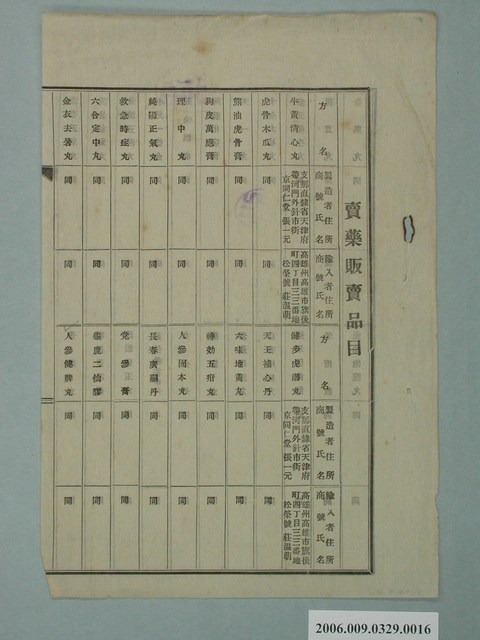 賣藥販賣品目
方名
製造者住所
商號氏名
輸入者住所
商號氏名
牛黃清心丸
支那直隸省天津府
帶河門外針市街
京同仁堂 張一元
高雄州高雄市旗後
町四丁目三三番地
松榮號 莊溫萌
虎骨木瓜丸 同 同
熊油虎骨膏 同 同
狗皮萬應膏 同 同
理中丸 同 同
純陽正氣丸 同 同
救急時症丸 同 同
六合定中丸 同 同
金衣去暑丸 同 同
方名
製造者住所
商號氏名
輸入者住所
商號氏名
支那直隸省天津府
帶河門外針市街
京同仁堂 張一元
高雄州高雄市旗後
町四丁目三三番地
松榮號 莊溫萌
天王補心丹 同 同
六味地黃丸 同 同
神効五疳丸 同 同
人參固本丸 同 同
長春廣嗣丹 同 同
黨參膏 同 同
龜鹿二仙膠 同 同
人參健脾丸 同 同
2006.009.0329.0016